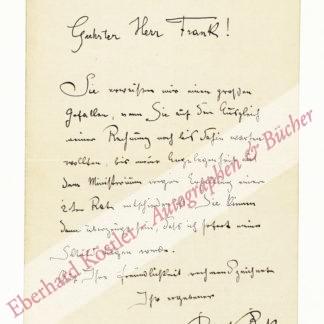 Geehrter Herr Frank!
Sie erweisen mir einen großen
Gefallen, wenn Sie auf den Ausgleich
einer Rechnung noch bis dahin warten
wollten, bis meine Angelegenheit mit
dem Ministerium wegen Erfolgung einer
2ten Rate entschieden ist. Sie können
dann überzeugt sein, daß ich sofort einen
werde.
Auf Ihre Freundlichkeit rechnend zeichnet
Ihr ergebener
Eberhard Köstler Autographen & Bücher